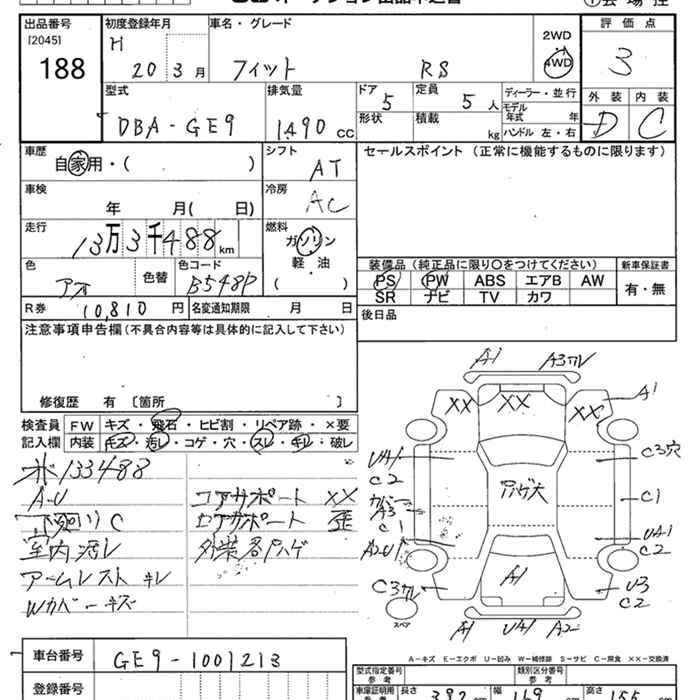 出品番号 初度登録年月 車名・グレード 2WD 評価点
[2045] H 4WD
188 20 3月 フィット RS 3
型式 排気量 ドア 5 定員 5人 ディーラー・並行 外装 内装
DBA-GE9 1490 CC 形状 積載 kg モデル年式 年 D C
ハンドル 左・右
車歴 シフト セールスポイント (正常に機能するものに限ります)
自家用・( ) AT
車検 冷房
年 月( 日) AC
走行 燃料
13万3千488km ガソリン
軽・油
色 色替 色コード ( ) 装備品 (純正品に限り○をつけてください) 新車保証書
アオ B548P PS PW ABS エアB AW 有・無
SR ナビ TV カワ
R券 10,810円 名変通知期限 月 日 後日品
注意事項申告欄 (不具合内容等は具体的に記入して下さい)
修復歴 有 [箇所 ]
検査員 FW キズ・飛石・ヒビ割・リペア跡・×要
記入欄 内装 キズ・汚レ・コゲ・穴・スレ・キレ・破レ
A1 A3ワレ
A1
XX XX XX
133488
A-U コアサポート XX
下廻り C コアサポート 歪
室内汚レ 外装各所ハゲ
アームレスト キレ
Wカバーキズ
UA1 C3穴
C2
カバー
A3 C1
C1 UA1
A2U1 C2
A1
C3ワレ U3
C2
スペア
A1 UA1 A2
A-キズ E-エクボ U-凹み W-補修跡 S-サビ C-腐食 XX-交換済
車台番号 GE9-1001213
型式指定番号 類別区分番号
参考 参考
登録番号 車庫証明用 長さ 392 cm 幅 169 cm 高さ 155 cm